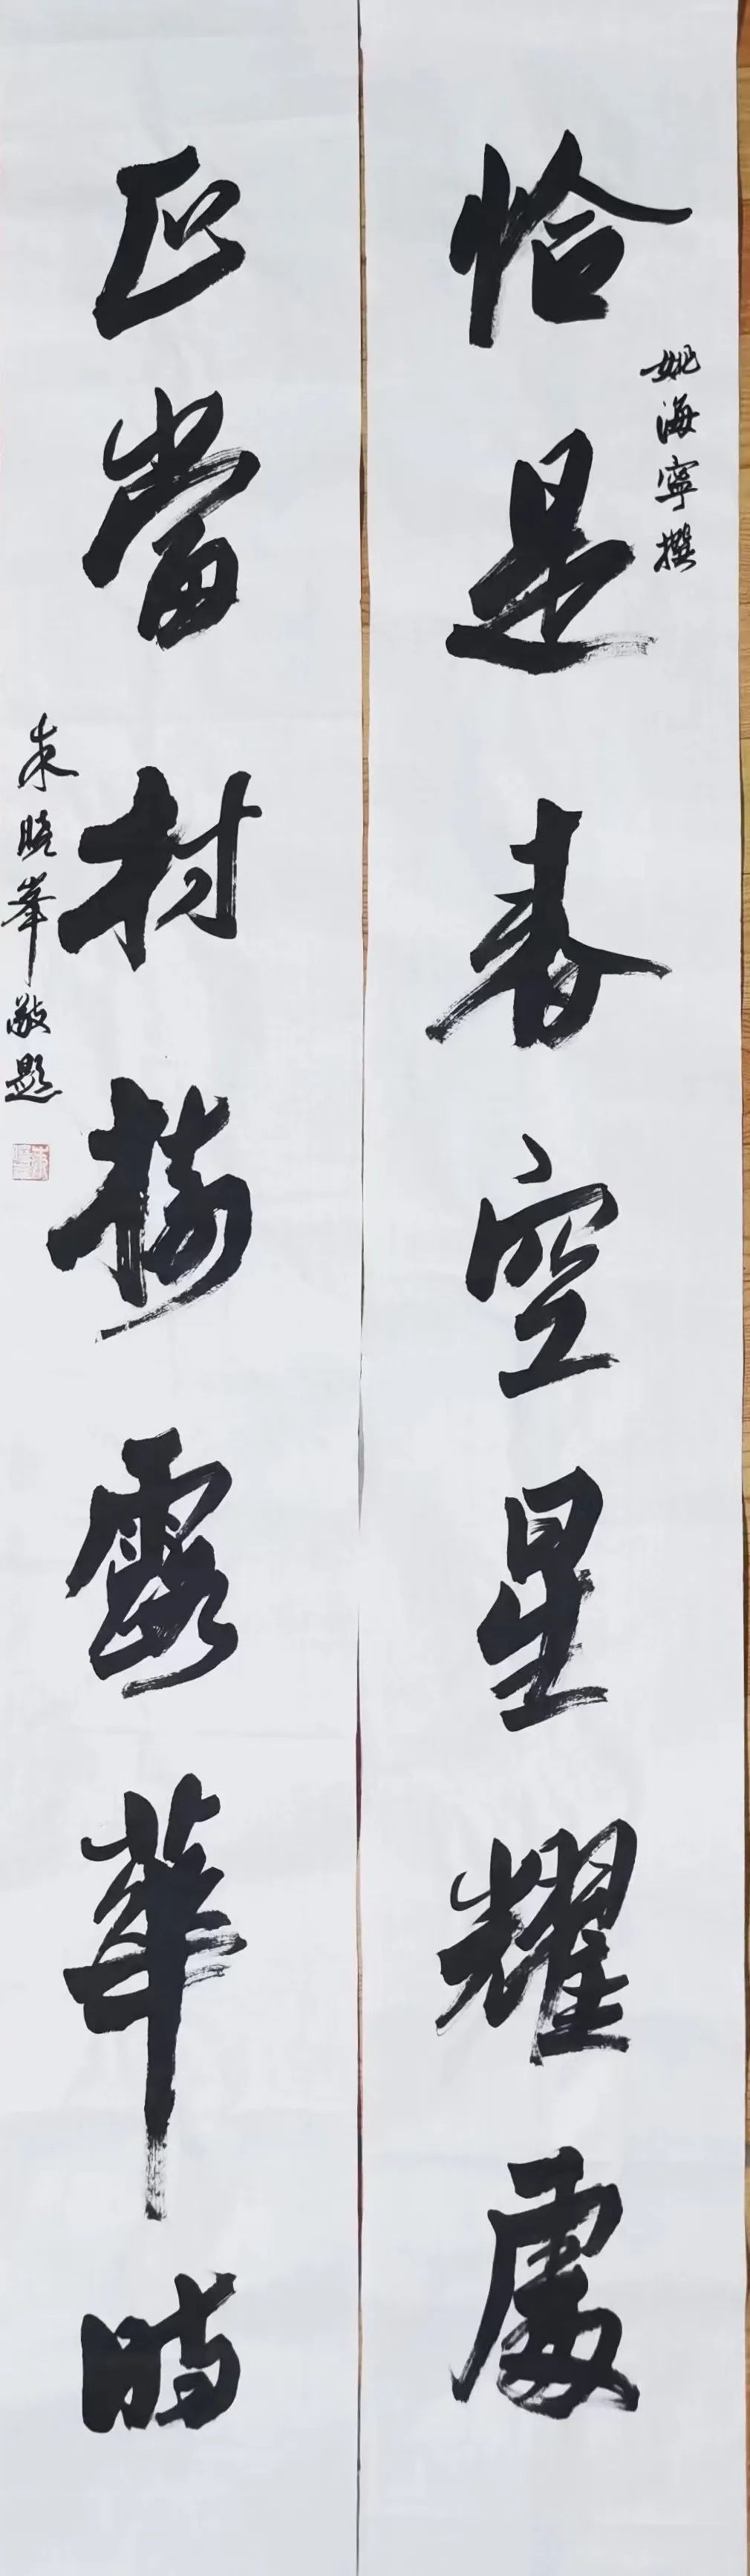 恰是春空星耀處
姚海寧撰
正當村露華時
朱曉峯敬題